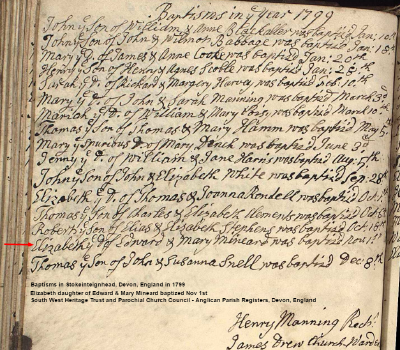 Baptisms in y Year 1799
John y Son of William & Anne Blackaller was baptiz'd Jan: 10th
John y Son of John & Wilmot Babbage was baptiz'd Jan: 15th
Mary y D. of James & Anne Cooke was baptiz'd Jan: 20th
Henry y Son of Henry & Agnes Scoble was baptiz'd Jan: 25th
Sarah y D. of Richard & Margery Hervey was baptiz'd Feb. 10th
Mary y D. of John & Sarah Manning was baptiz'd March 3d
Mariah y D. of William & Mary was baptiz'd March 10th
Thomas y Son of Thomas & Mary Hamm was baptiz'd May 5th
Mary y Spurious D. of Mary was baptiz'd June 3d
Jenny y D. of William & Jane Harris was baptiz'd Aug. 5th
John y Son of John & Elizabeth White was baptiz'd Sep. 28th
Elizabeth y D. of Thomas & Joanna Rendell was baptiz'd Oct.
Thomas y Son of Charles & Elizabeth Clements was baptiz'd Oct.
Robert y Son of Elias & Elizabeth Stephens was baptiz'd Oct. 16th
Elizabeth y D. of Edward & Mary Mineard was baptiz'd Nov. 1st
Thomas y Son of John & Susanna Snell was baptiz'd Dec. 8th
Baptisms in Stokeinteignhead, Devon, England in 1799
Elizabeth daughter of Edward & Mary Mineard baptized Nov 1st
South West Heritage Trust and Parochial Church Council - Anglican Parish Registers, Devon, England
Henry Manning Rectr
James Drew Church Warden